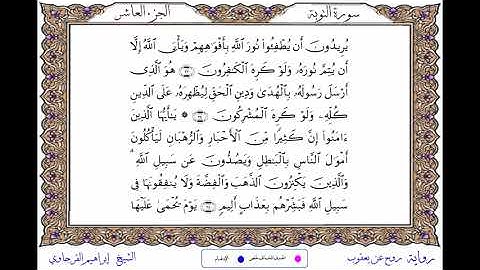 سورة التوبة
الجزء العاشر
يُرِيدُونَ أَن يُطْفِئُوا۟ نُورَ ٱللَّهِ بِأَفْوَٰهِهِمْ وَيَأْبَى ٱللَّهُ إِلَّآ
أَن يُتِمَّ نُورَهُۥ وَلَوْ كَرِهَ ٱلْكَٰفِرُونَ ۝ هُوَ ٱلَّذِىٓ
أَرْسَلَ رَسُولَهُۥ بِٱلْهُدَىٰ وَدِينِ ٱلْحَقِّ لِيُظْهِرَهُۥ عَلَى ٱلدِّينِ
كُلِّهِۦ وَلَوْ كَرِهَ ٱلْمُشْرِكُونَ ۝ ۞ يَٰٓأَيُّهَا ٱلَّذِينَ
ءَامَنُوٓا۟ إِنَّ كَثِيرًا مِّنَ ٱلْأَحْبَارِ وَٱلرُّهْبَانِ لَيَأْكُلُونَ
أَمْوَٰلَ ٱلنَّاسِ بِٱلْبَٰطِلِ وَيَصُدُّونَ عَن سَبِيلِ ٱللَّهِ ۗ
وَٱلَّذِينَ يَكْنِزُونَ ٱلذَّهَبَ وَٱلْفِضَّةَ وَلَا يُنفِقُونَهَا فِى
سَبِيلِ ٱللَّهِ فَبَشِّرْهُم بِعَذَابٍ أَلِيمٍ ۝ يَوْمَ يُحْمَىٰ عَلَيْهَا
رواية روح عن يعقوب
الشيخ إبراهيم الفرجاوي